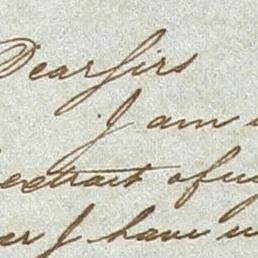 Dear Sirs
I am
extract of
I have